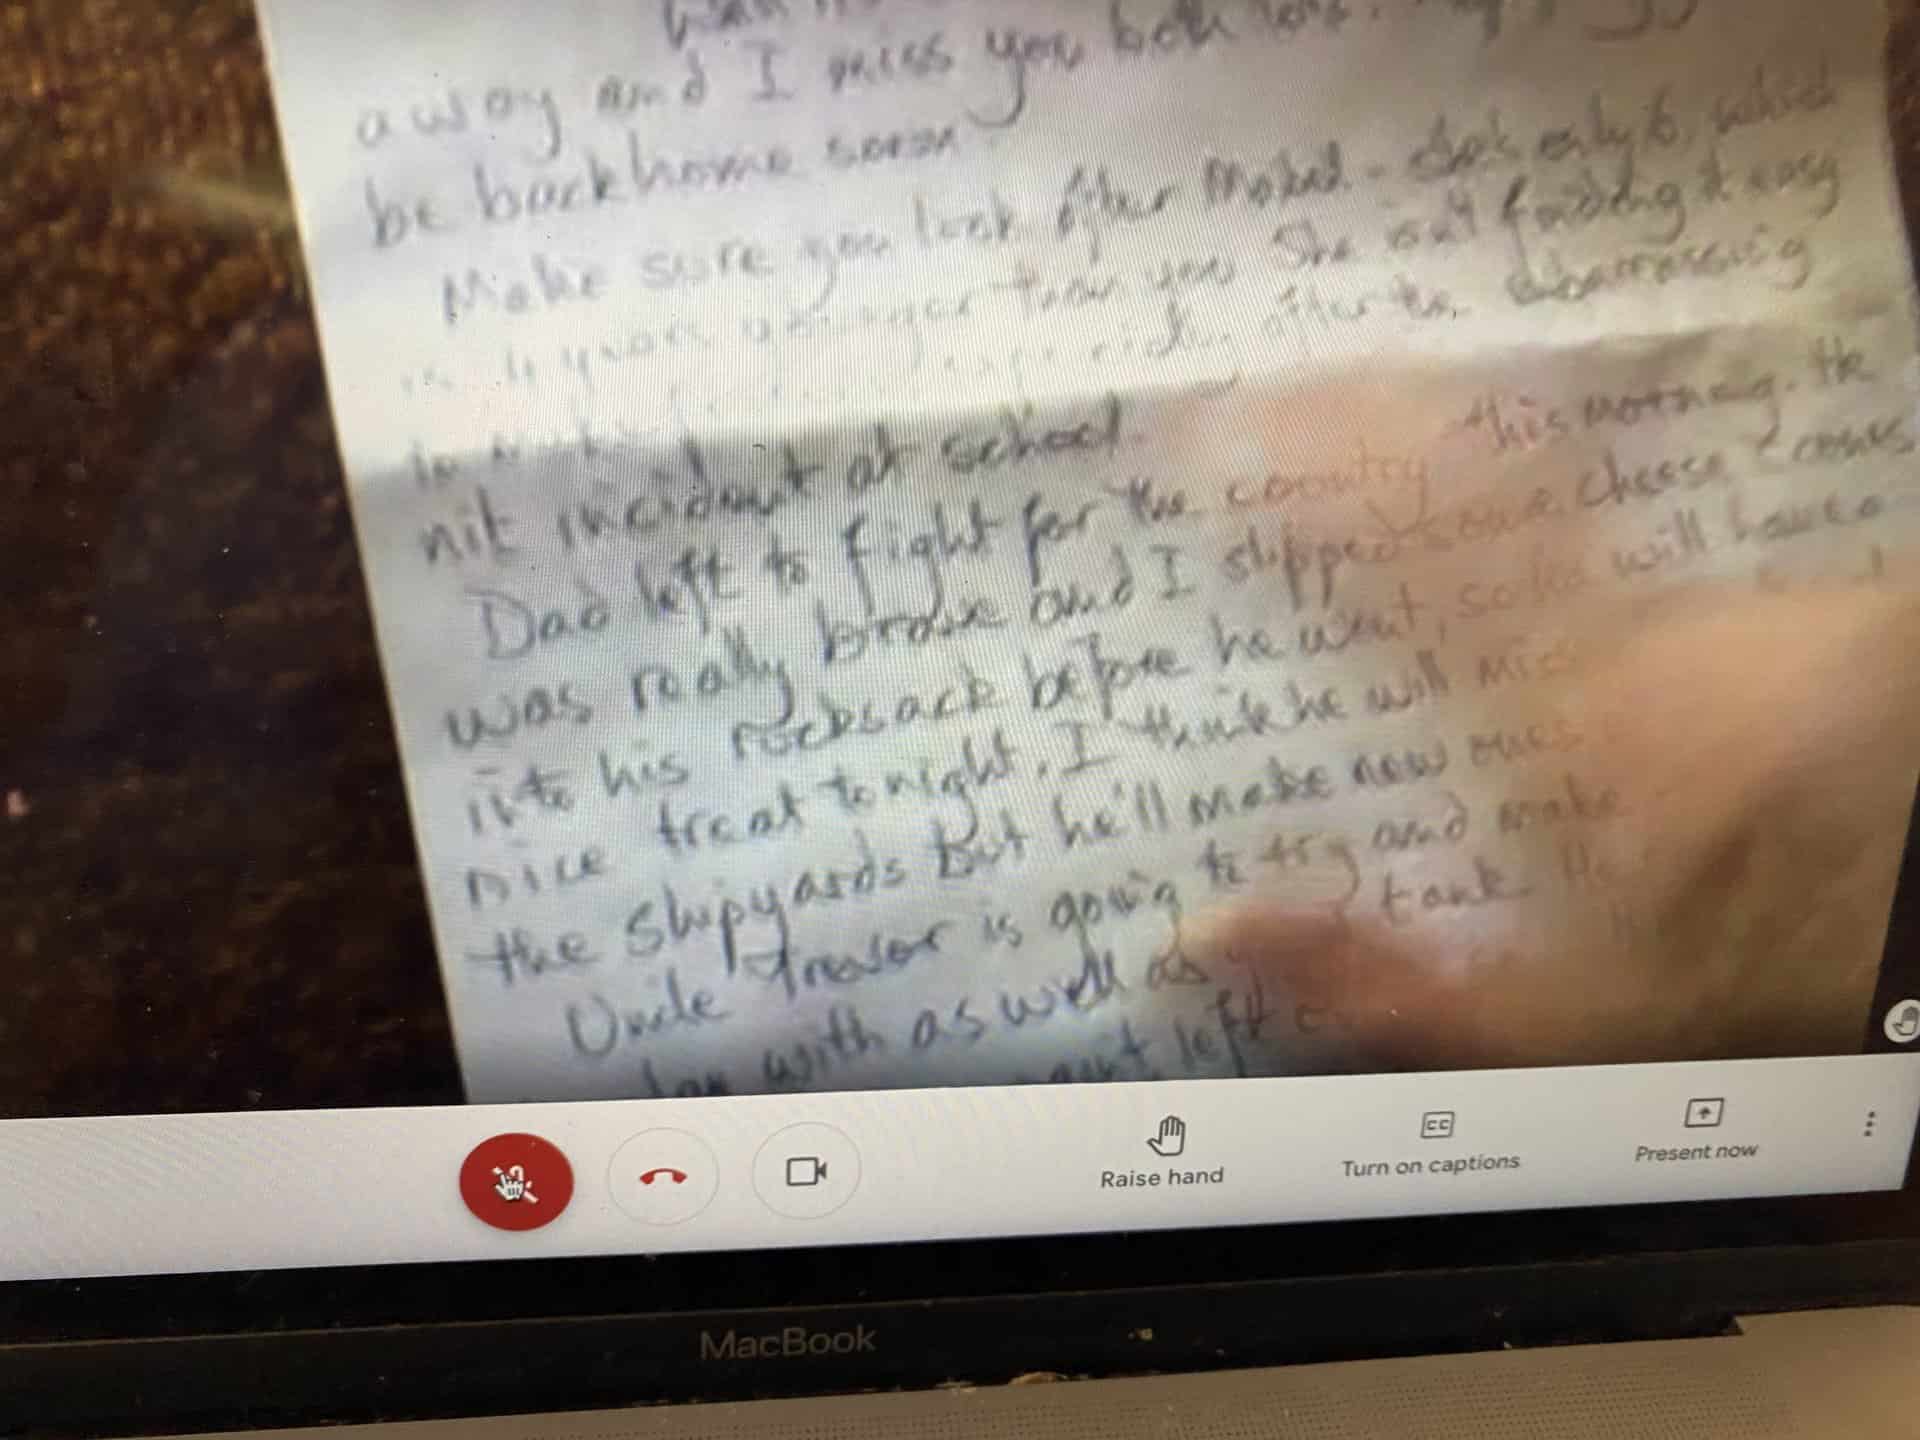 away and I miss you both
be back home soon
Make sure you look after Mabel - She's only 6, which
is 4 years younger than you. She isn't finding it easy
after the embarrassing
nit incident at school.
Dad left to fight for the country this morning. He
was really brave and I slipped some cheese
into his rucksack before he went, so he will have a
nice treat tonight. I think he will miss
the shipyards but he'll make new ones
Uncle Trevor is going to try and make
with as well as tank. He
left
Raise hand
Turn on captions
Present now
MacBook